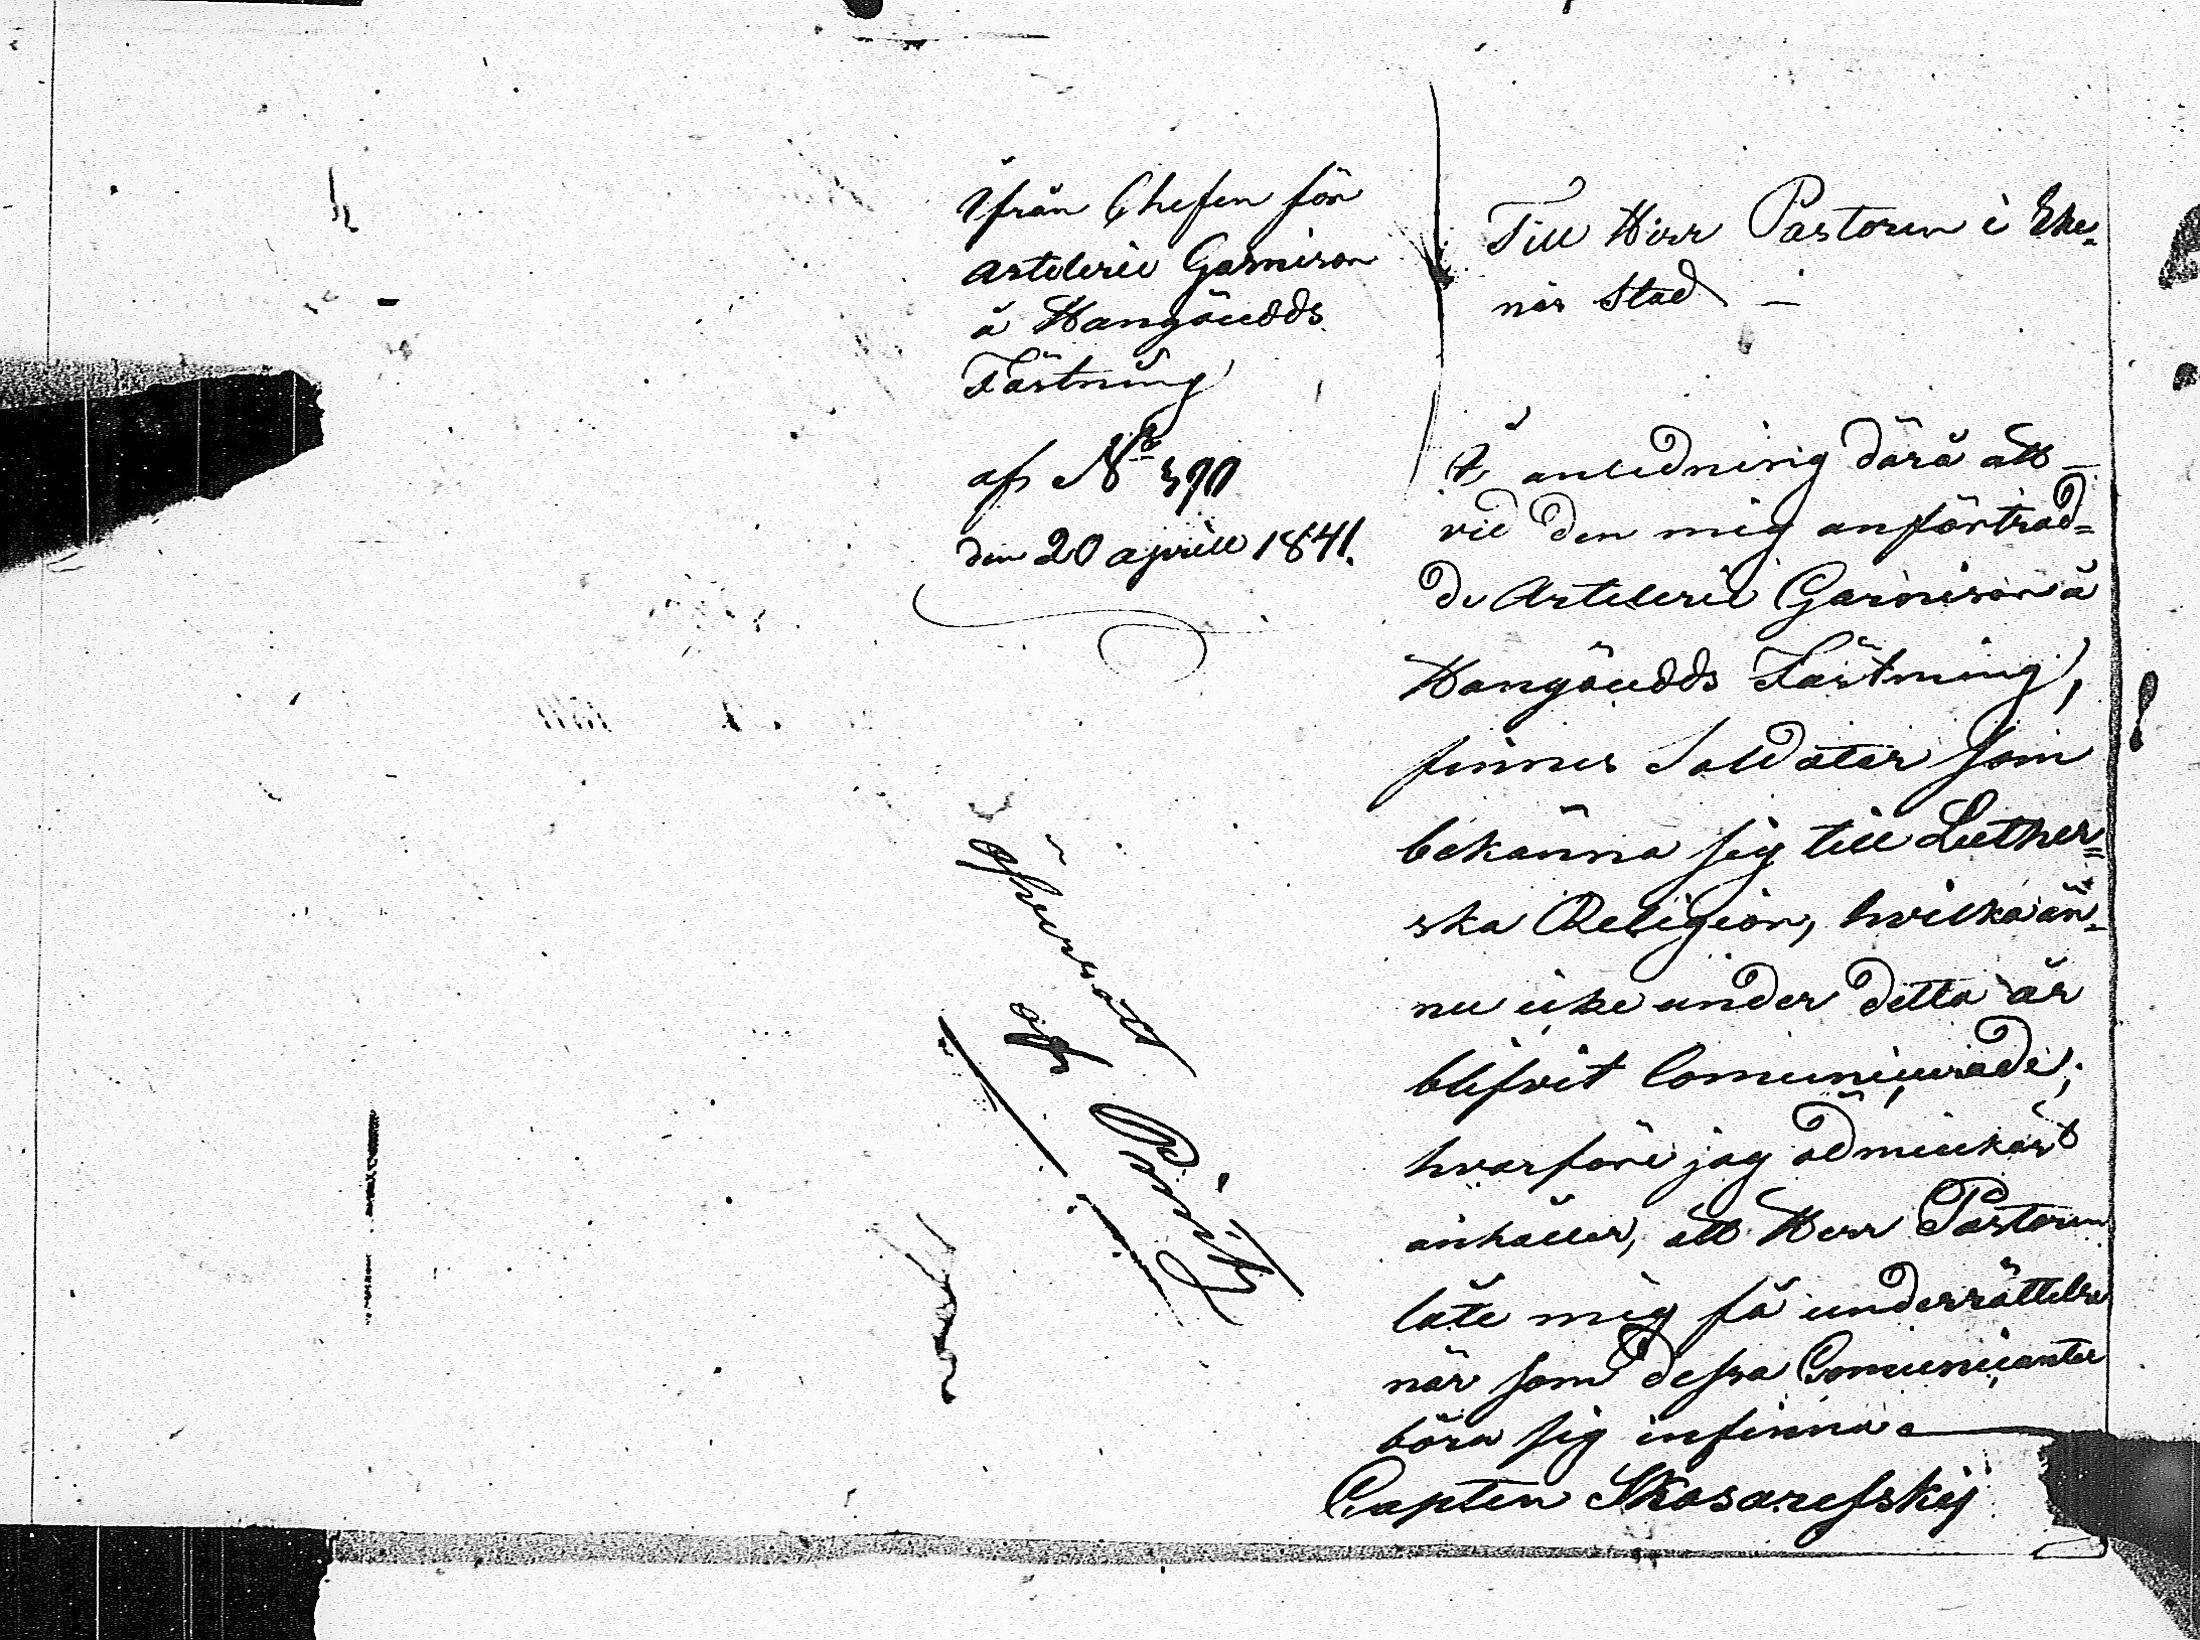 Ifrån Chefen för
Artelerie Garnison
å Hangöudds
Fästning
af No 390
den 20 aprill 1841.
öfversatt
af
Till Herr Pastoren i Eke=
näs Stad –
I anledning därå att
vid den mig anförtrod=
de Artelerie Garnison å
Hangöudds Fästning,
finnes Soldater som
bekänna sig till Luther=
ska Religion, hvilka än=
nu icke under detta år
blifvit Comunicerade;
hvarföre jag ödmiukast
anhåller, att Herr Pastoren
låte mig få underrättelse
när som dessa Comunicanter
böra sig infinna
Capten Skasarefskij